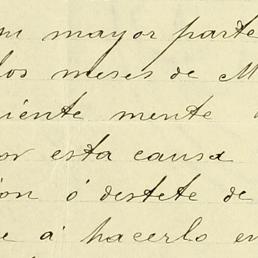 mayor parte
los meses de M
iente mente
or esta causa
ion ó destete de
e á hacerlo en